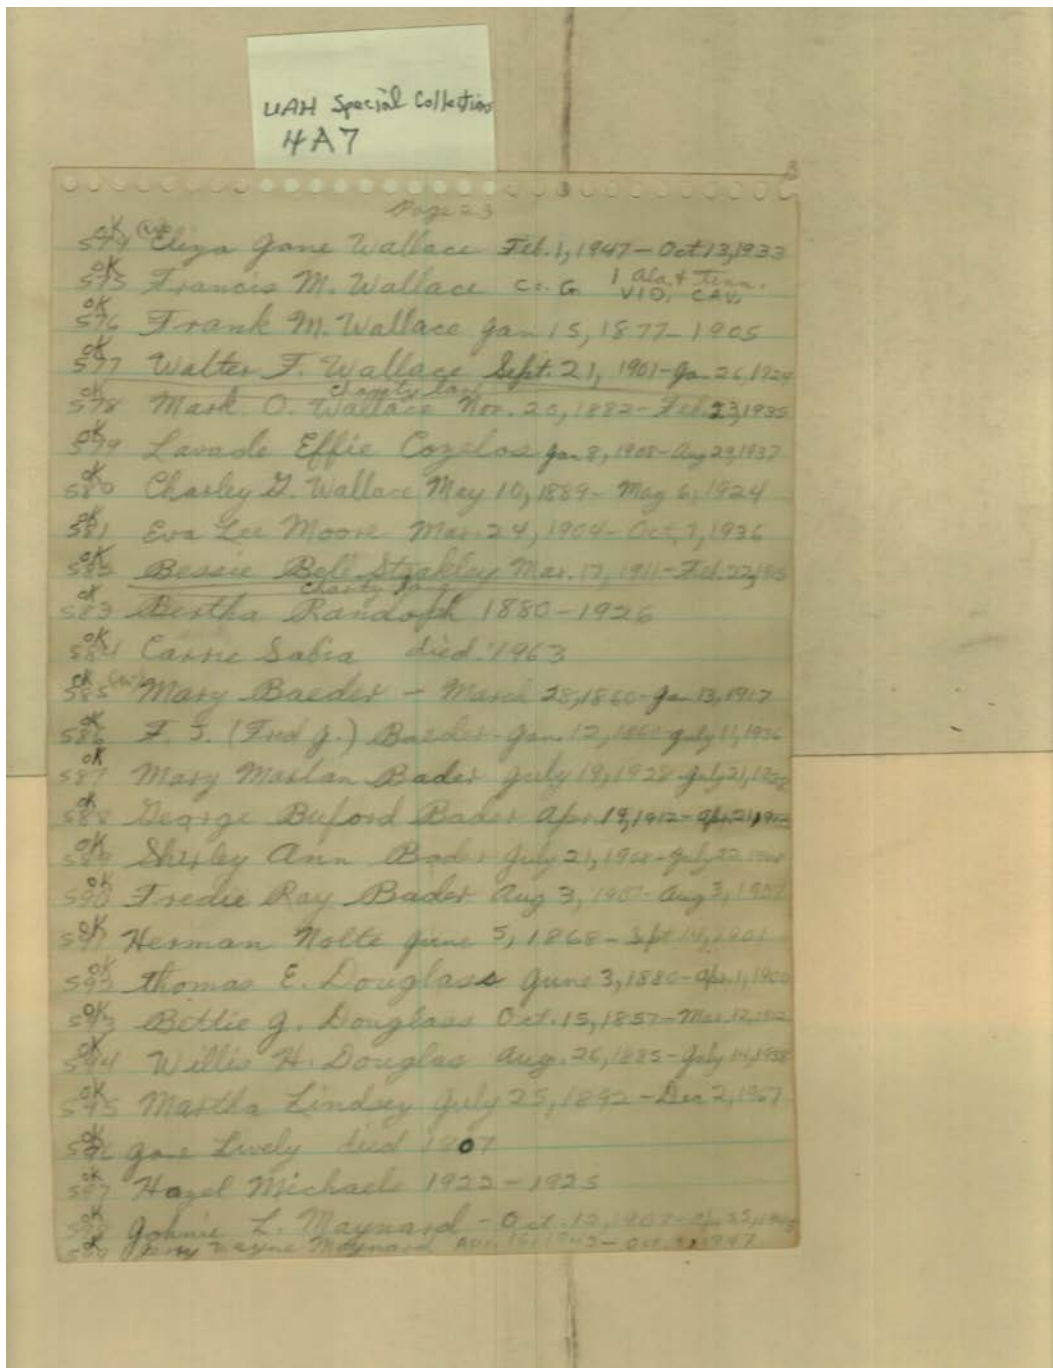 UAH Special Collections
4A7
Page 23
OK
574 Eliza Jane Wallace Feb. 1, 1947 - Oct 13, 1933
OK
575 Francis M. Wallace Co. G 1 Ala. & Tenn.
VID, CAV,
OK
576 Frank M. Wallace Jan 15, 1877 - 1905
OK
577 Walter F. Wallace Sept. 21, 1901 - Ja. 26, 1924
OK
578 Mark O. Wallace Nov. 20, 1882 - Feb. 23, 1935
OK
579 Lavade Effie Cozelos Jan 8, 1908 - Aug 23, 1937
OK
580 Charley G. Wallace May 10, 1889 - May 6, 1924
OK
581 Eva Lee Moore Mar. 24, 1904 - Oct, 7, 1936
OK
Bessie Bell Stoakley Mar. 17, 1911 - Feb. 22,
Charity
OK
583 Bertha Randolph 1880 - 1926
OK
584 Carrie Sabia died 1963
OK
585 Mary Baeder - March 28, 1860 - Ja 13, 1917
OK
586 F. J. (Fred J.) Baeder - Jan. 12, - July 11, 1936
OK
587 Mary Marlan Bader July 19, 1928 - July 21, 1928
OK
588 George Buford Bader Apr. 19, 1912 - Apr. 21, 1912
OK
589 Shirley Ann Bader July 21, - July 22
OK
590 Fredie Ray Bader Aug 3, - Aug 3,
OK
591 Herman Nolte June 5, 1868 - Sept 14, 1901
OK
592 Thomas E. Douglass June 3, 1880 - Apr. 1, 1900
OK
593 Bettie J. Douglass Oct. 15, 1857 - Mar. 12,
OK
594 Willis H. Douglas Aug. 26, 1885 - July 14, 1958
OK
595 Martha Lindsey July 25, 1892 - Dec 2, 1967
OK
596 Lively died 1907
OK
597 Hazel Michaels 1922 - 1925
OK
598 Johnie L. Maynard - Oct. 12, 1907 -
OK
599 Jerry Wayne Maynard - Oct. 1947